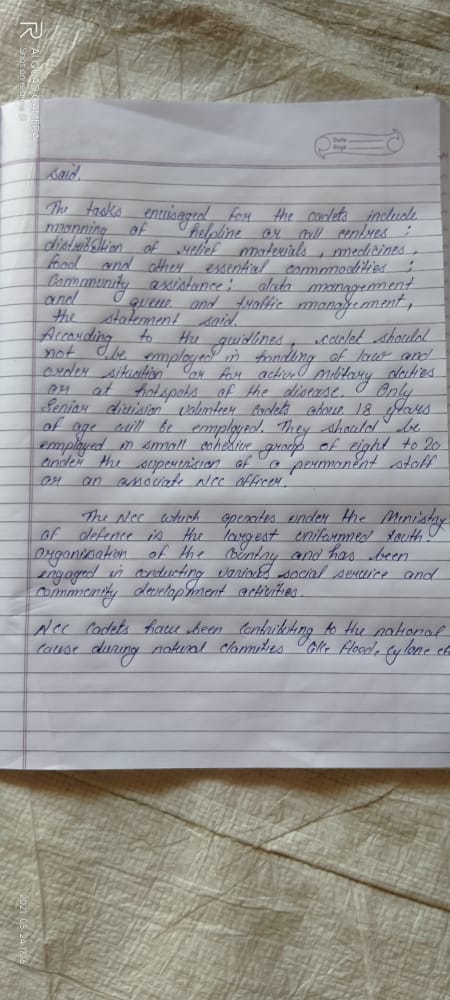 AI QUAD CAMERA
Shot on realme
Date
Page
said.
The tasks envisaged for the cadets include
manning of helpline or call centres ;
distribution of relief materials, medicines,
food and other essential commodities ;
Community assistance ; data management
and queue and traffic management,
the statement said.
According to the guidlines, cadet should
not be employed in handling of law and
order situation or for active military duties
or at hotspots of the disease. Only
Senior division volunteer cadets above 18 years
of age will be employed. They should be
employed in small cohesive group of eight to 20
under the supervision of a permanent staff
or an associate Ncc officer.
The Ncc which operates under the Ministry
of defence is the largest uniformed youth.
organisation of the Country and has been
engaged in conducting various social service and
community development activities.
Ncc Cadets have been Contributing to the national
cause during natural clamities like flood, cylone
2021.05.24 17:16